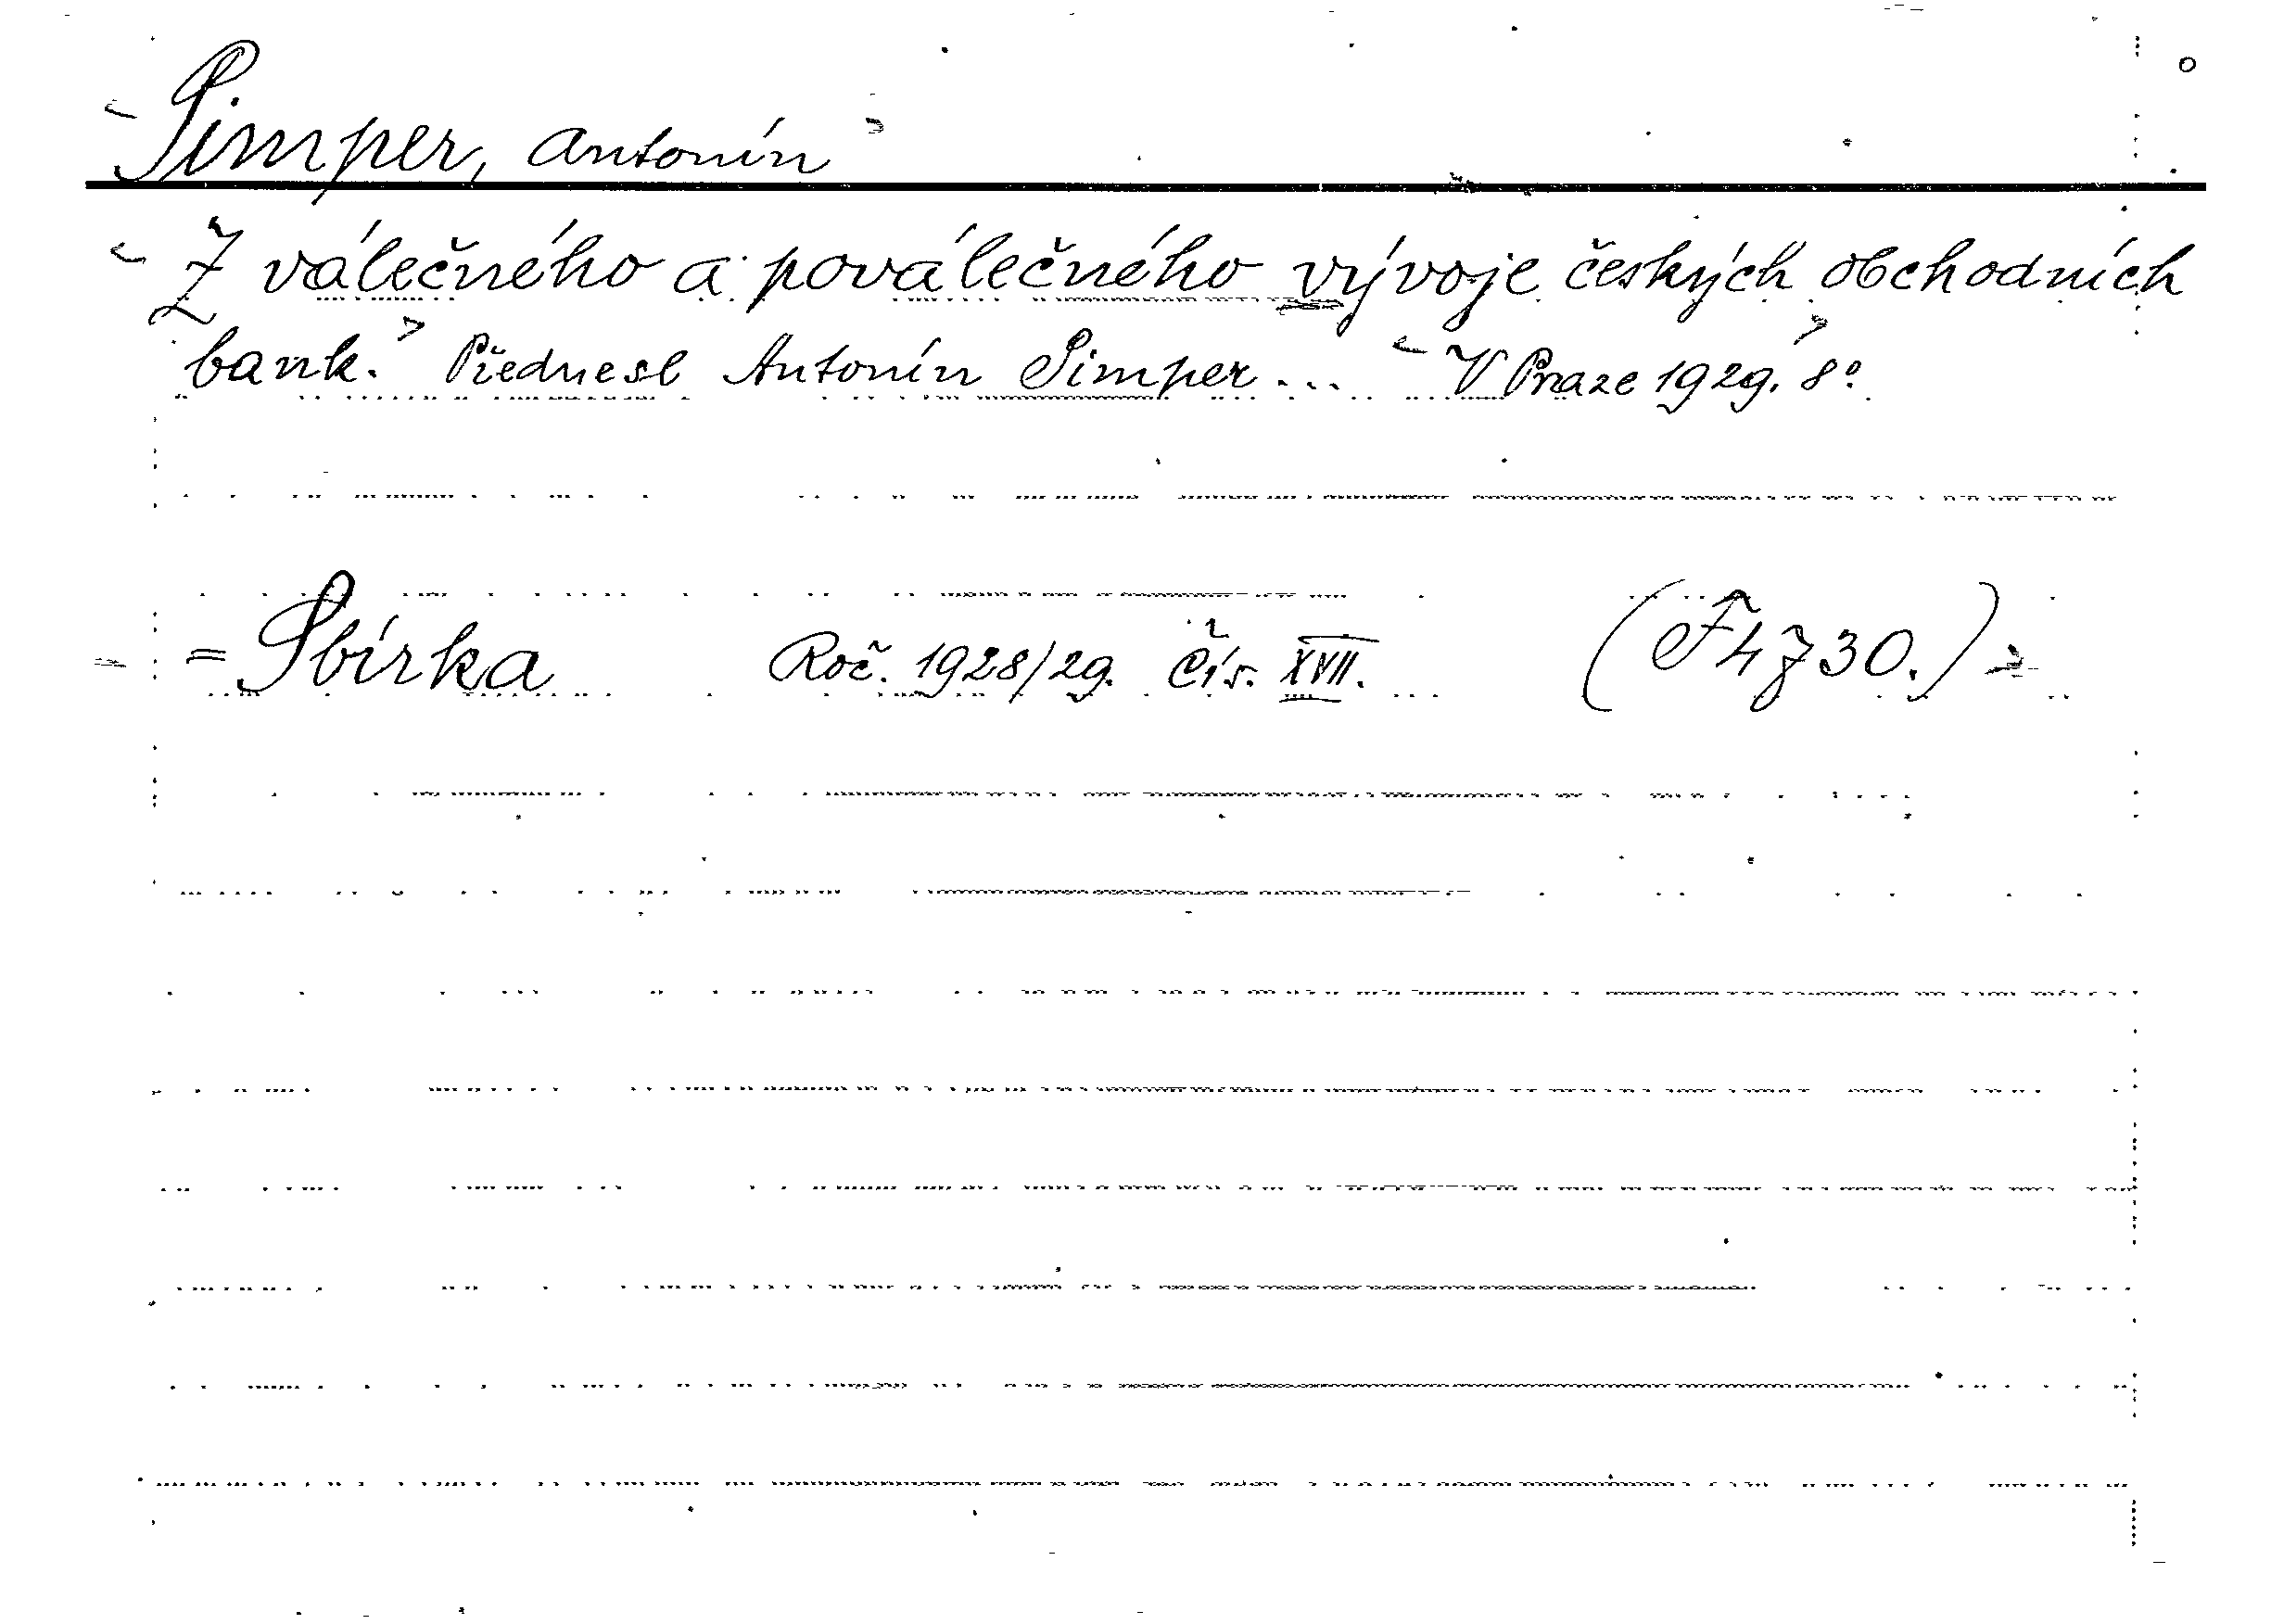 Simper, Antonín
Z válečného a poválečného vývoje českých obchodních
bank. Přednesl Antonín Simper... V Praze 1929. 8°.
= Sbírka Roč. 1928/29. Čís. XVII. (F 4730.)